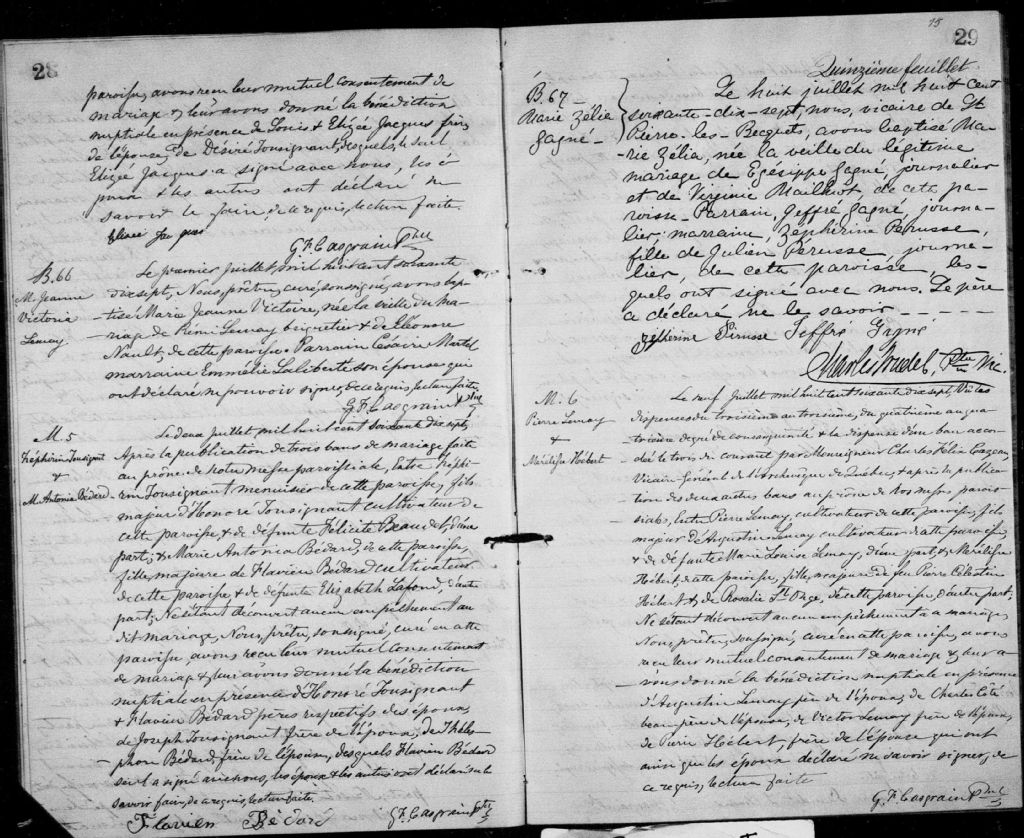 28
paroisse, avons reçu leur mutuel consentement de
mariage & leur avons donné la bénédiction
nuptiale en présence de Louis & Elizée Jacques frères
de l'épouse, de Désiré Tousignant, desquels le seul
Elizée Jacques a signé avec nous, les é
poux & les autres ont déclaré ne
savoir le faire, de ce requis, lecture faite.
G. F. Casgrain Ptre
B. 66
M. Jeanne
Victoria
Lemay
Le premier juillet, mil huit cent soixante
dix sept, Nous, prêtre, curé, soussigné, avons bap-
tisé Marie Jeanne Victoire, née la veille du ma-
riage de Rémi Lemay briquetier & de Eléonore
Nault, de cette paroisse. Parrain Césaire Martel
marraine Emmélie Laliberté son épouse qui
ont déclaré ne pouvoir signer, de ce requis, lecture faite.
G. F. Casgrain Ptre
M. 5
Zéphirin Tousignant
&
M. Antonia Bédard
Le deux juillet mil huit cent soixante dix sept,
Après la publication de trois bans de mariage faite
au prône de notre messe paroissiale, Entre Zéphi-
rin Tousignant menuisier de cette paroisse, fils
majeur d'Honoré Tousignant cultivateur de
cette paroisse & de défunte Félicité Beaudet, d'une
part; & Marie Antonia Bédard, de cette paroisse,
fille majeure de Flavien Bédard cultivateur
de cette paroisse & de défunte Elisabeth, d'autre
part; Ne s'étant découvert aucun empêchement au
dit mariage, Nous, prêtre, soussigné, curé en cette
paroisse, avons reçu leur mutuel consentement
de mariage & leur avons donné la bénédiction
nuptiale en présence d'Honoré Tousignant
& Flavien Bédard pères respectifs des époux,
de Joseph Tousignant frère de l'époux, de Théles-
phore Bédard, frère de l'épouse, desquels Flavien Bédard
seul a signé avec nous, les époux & les autres ont déclaré ne le
savoir faire, de ce requis, lecture faite.
Flavien Bédard G. F. Casgrain Ptre
15
29
Quinzième feuillet.
B. 67
Marie Zélia
Gagné
Le huit juillet mil huit cent
soixante-dix-sept, nous, vicaire de St
Pierre-les-Becquets, avons baptisé Ma-
rie Zélia, née la veille du légitime
mariage de Egesippe Gagné, journalier
et de Virginie Mailhot de cette pa-
roisse. Parrain, Geffré Gagné, journa-
lier; marraine, Zéphérine Pérusse,
fille de Julien Pérusse, journa-
lier, de cette paroisse, les-
quels ont signé avec nous. Le père
a déclaré ne le savoir - - - - -
Zefférine Perusse Jeffré Gagné
Charles Trudel, Ptre Vic.
M. 6
Pierre Lemay
&
Merélise Hébert
Le neuf juillet mil huit cent soixante dix sept, Vu les
dispenses du troisième au troisième, du quatrième au qua-
trième degré de consanguinité & la dispense d'un ban accor-
dée le trois du courant par Monseigneur Charles Félix Cazeau
Vicaire Général de l'Archevêque de Québec, & après la publica-
tion des deux autres bans au prône de nos messes parois-
siales, Entre Pierre Lemay, cultivateur de cette paroisse, fils
majeur d'Augustin Lemay cultivateur de cette paroisse
& de défunte Marie Louise Lemay, d'une part, & Merélise
Hébert de cette paroisse, fille majeure de feu Pierre Célestin
Hébert & de Rosalie St Onge, de cette paroisse, d'autre part;
Ne s'étant découvert aucun empêchement à ce mariage,
Nous, prêtre, soussigné, curé en cette paroisse, avons
reçu leur mutuel consentement de mariage & leur a-
vons donné la bénédiction nuptiale en présence
d'Augustin Lemay père de l'époux, de Charles Côté
beau-père de l'épouse, de Victor Lemay frère de l'époux,
de Pierre Hébert, frère de l'épouse qui ont
ainsi que les époux déclaré ne savoir signer, de
ce requis, lecture faite
G. F. Casgrain Ptre